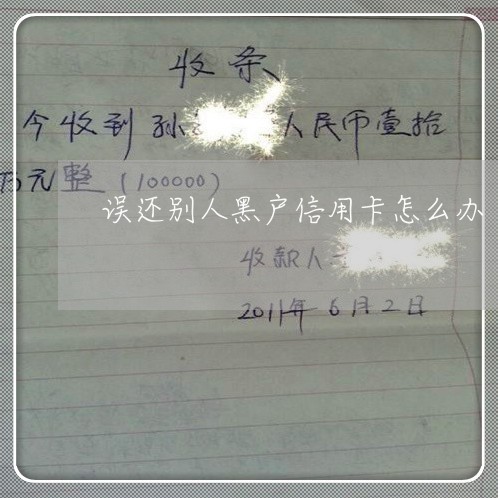 收条
今收到孙人民币壹拾
万元整（100000）
误还别人黑户信用卡怎么办
收款人
2011年6月2日